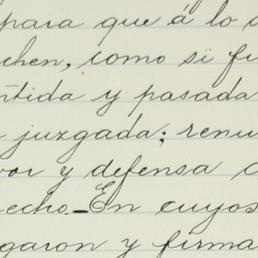 para que á lo
chen, como si fu
ntida y pasada
juzgada; renu
vor y defensa
echo.—En cuyos
garon y firma